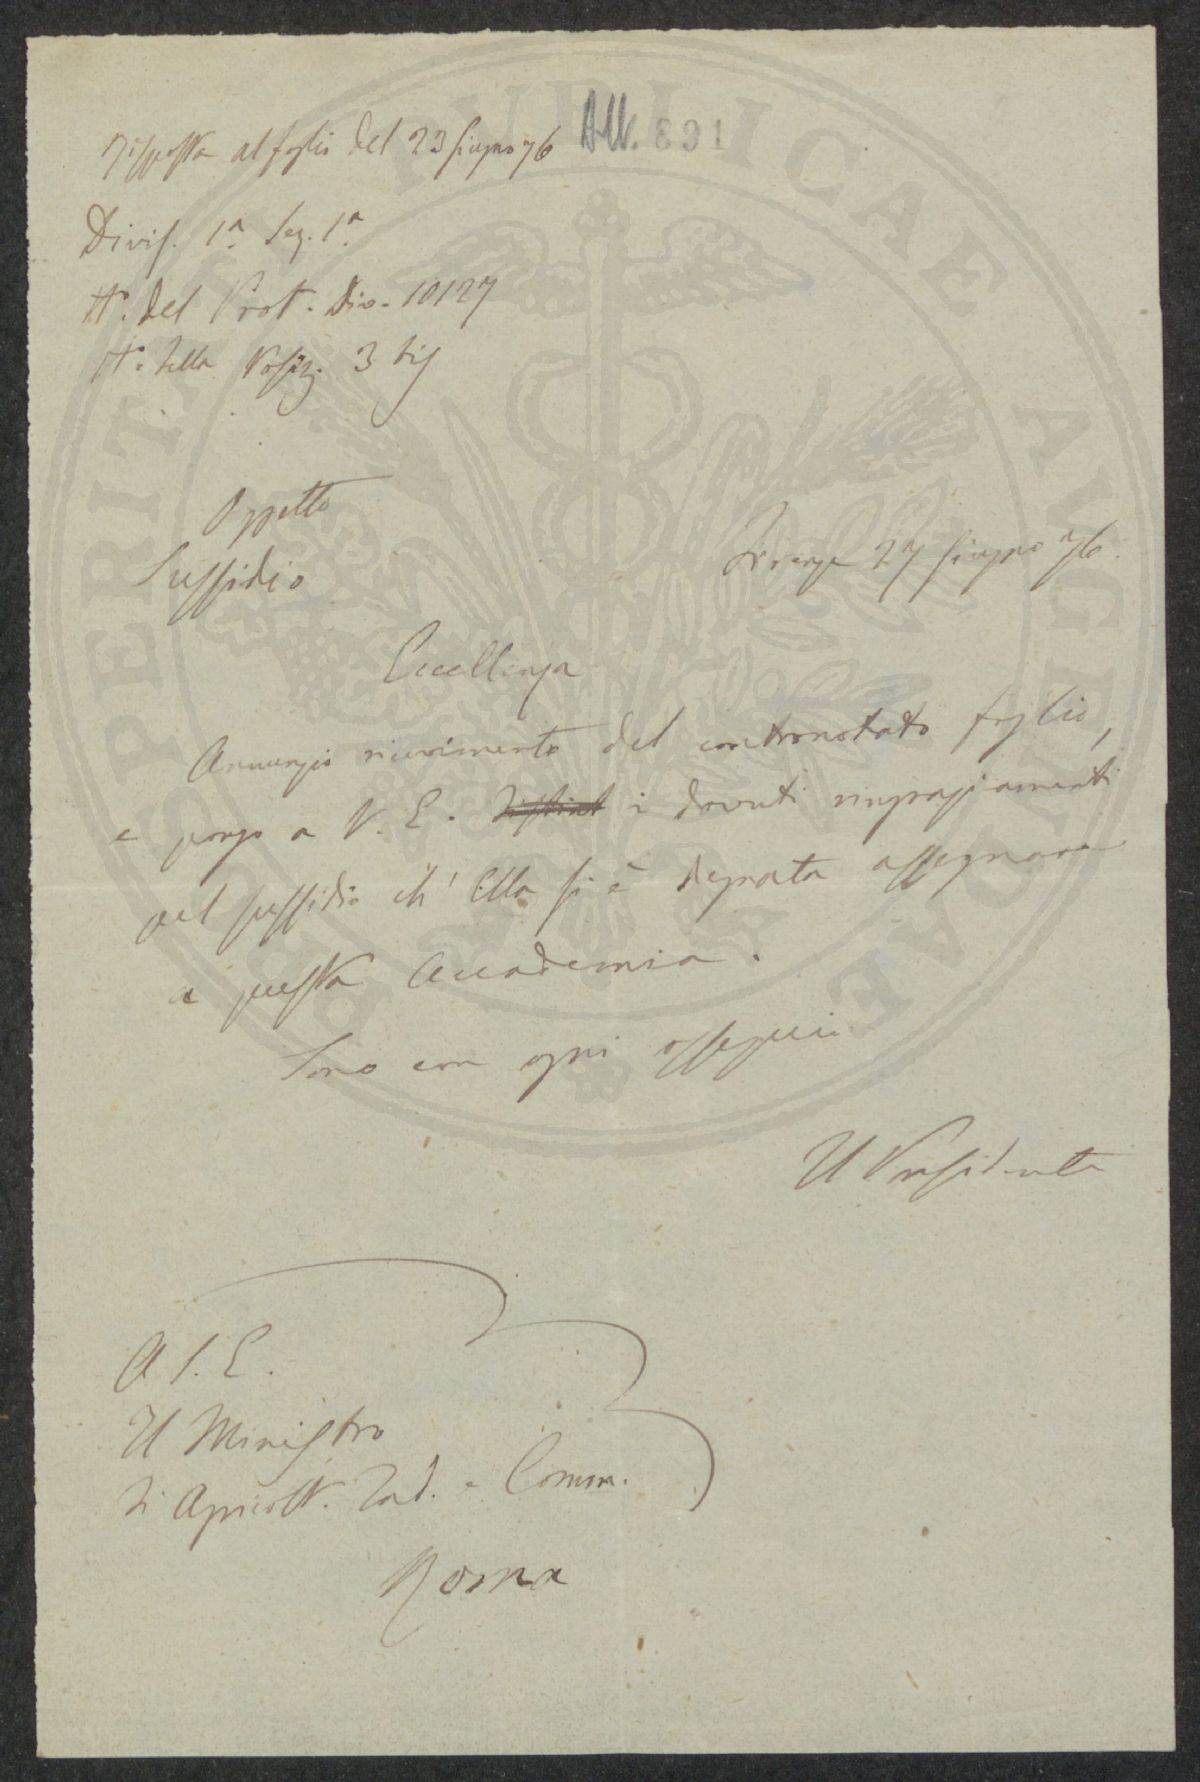 Risposta al foglio del 23 Giugno 76
All. 891
Divis. 1ª Sez. 1ª
N. del Prot. Div. 10127
N. della Posiz. 3 bis
Oggetto
Sussidio
Firenze 27 Giugno 76.
Eccellenza
Annunzio ricevimento del contronotato foglio,
e porgo a V. E. i dovuti ringraziamenti
pel sussidio ch' Ella si è degnata assegnare
a questa Accademia.
Sono con ogni ossequio
Il Presidente
A S. E.
Il Ministro
di Agricolt. Ind. e Comm.
Roma